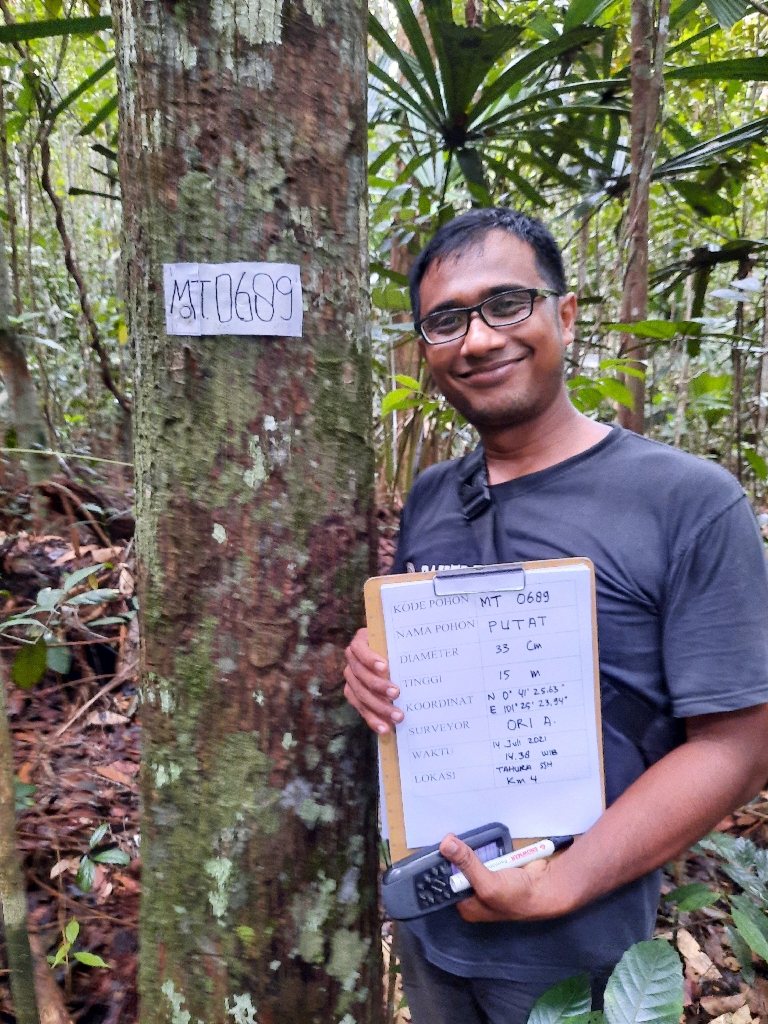 MT 0689
KODE POHON MT 0689
NAMA POHON PUTAT
DIAMETER 33 Cm
TINGGI 15 m
KOORDINAT N 0° 41' 25.63"
E 101° 25' 23.94"
SURVEYOR ORI A.
WAKTU 14 Juli 2021
14.38 WIB
LOKASI TAHURA SSH
Km 4
SNOWMAN